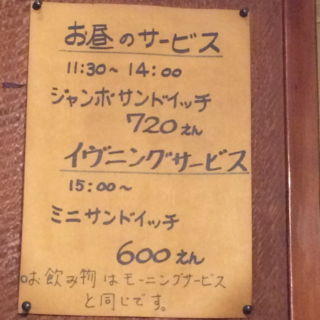 お昼のサービス
11:30～14:00
ジャンボサンドイッチ
720えん
イヴニングサービス
15:00～
ミニサンドイッチ
600えん
お飲み物はモーニングサービス
と同じです。